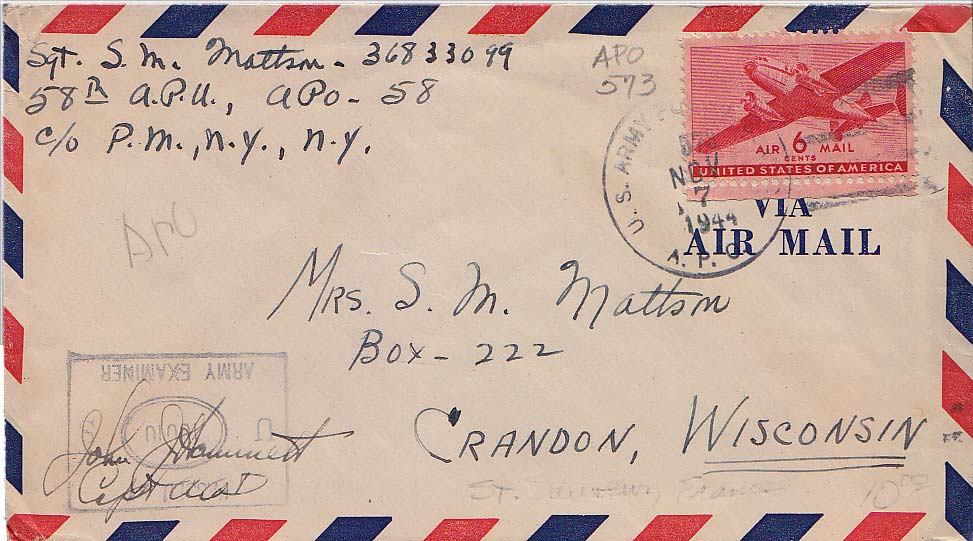 Sgt. S. M. Mattson - 36833099
58th A.P.U., APO - 58
c/o P.M., N.Y., N.Y.
APO
573
AIR 6 MAIL
CENTS
UNITED STATES OF AMERICA
U.S. ARMY
NOV
7
1944
A.P.O.
VIA
AIR MAIL
APO
Mrs. S. M. Mattson
Box - 222
CRANDON, WISCONSIN
ARMY EXAMINER
U
John
Capt
France
10.00